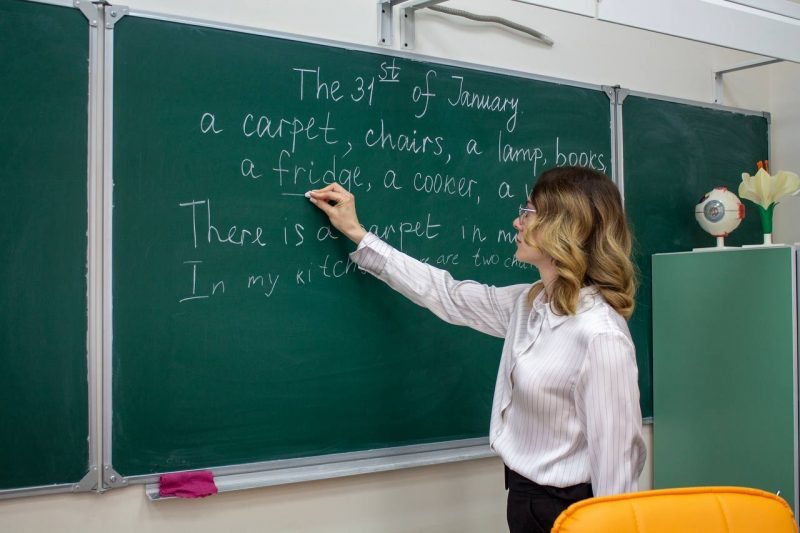 The 31st of January.
a carpet, chairs, a lamp, books,
a fridge, a cooker, a
There is a carpet in
In my are two